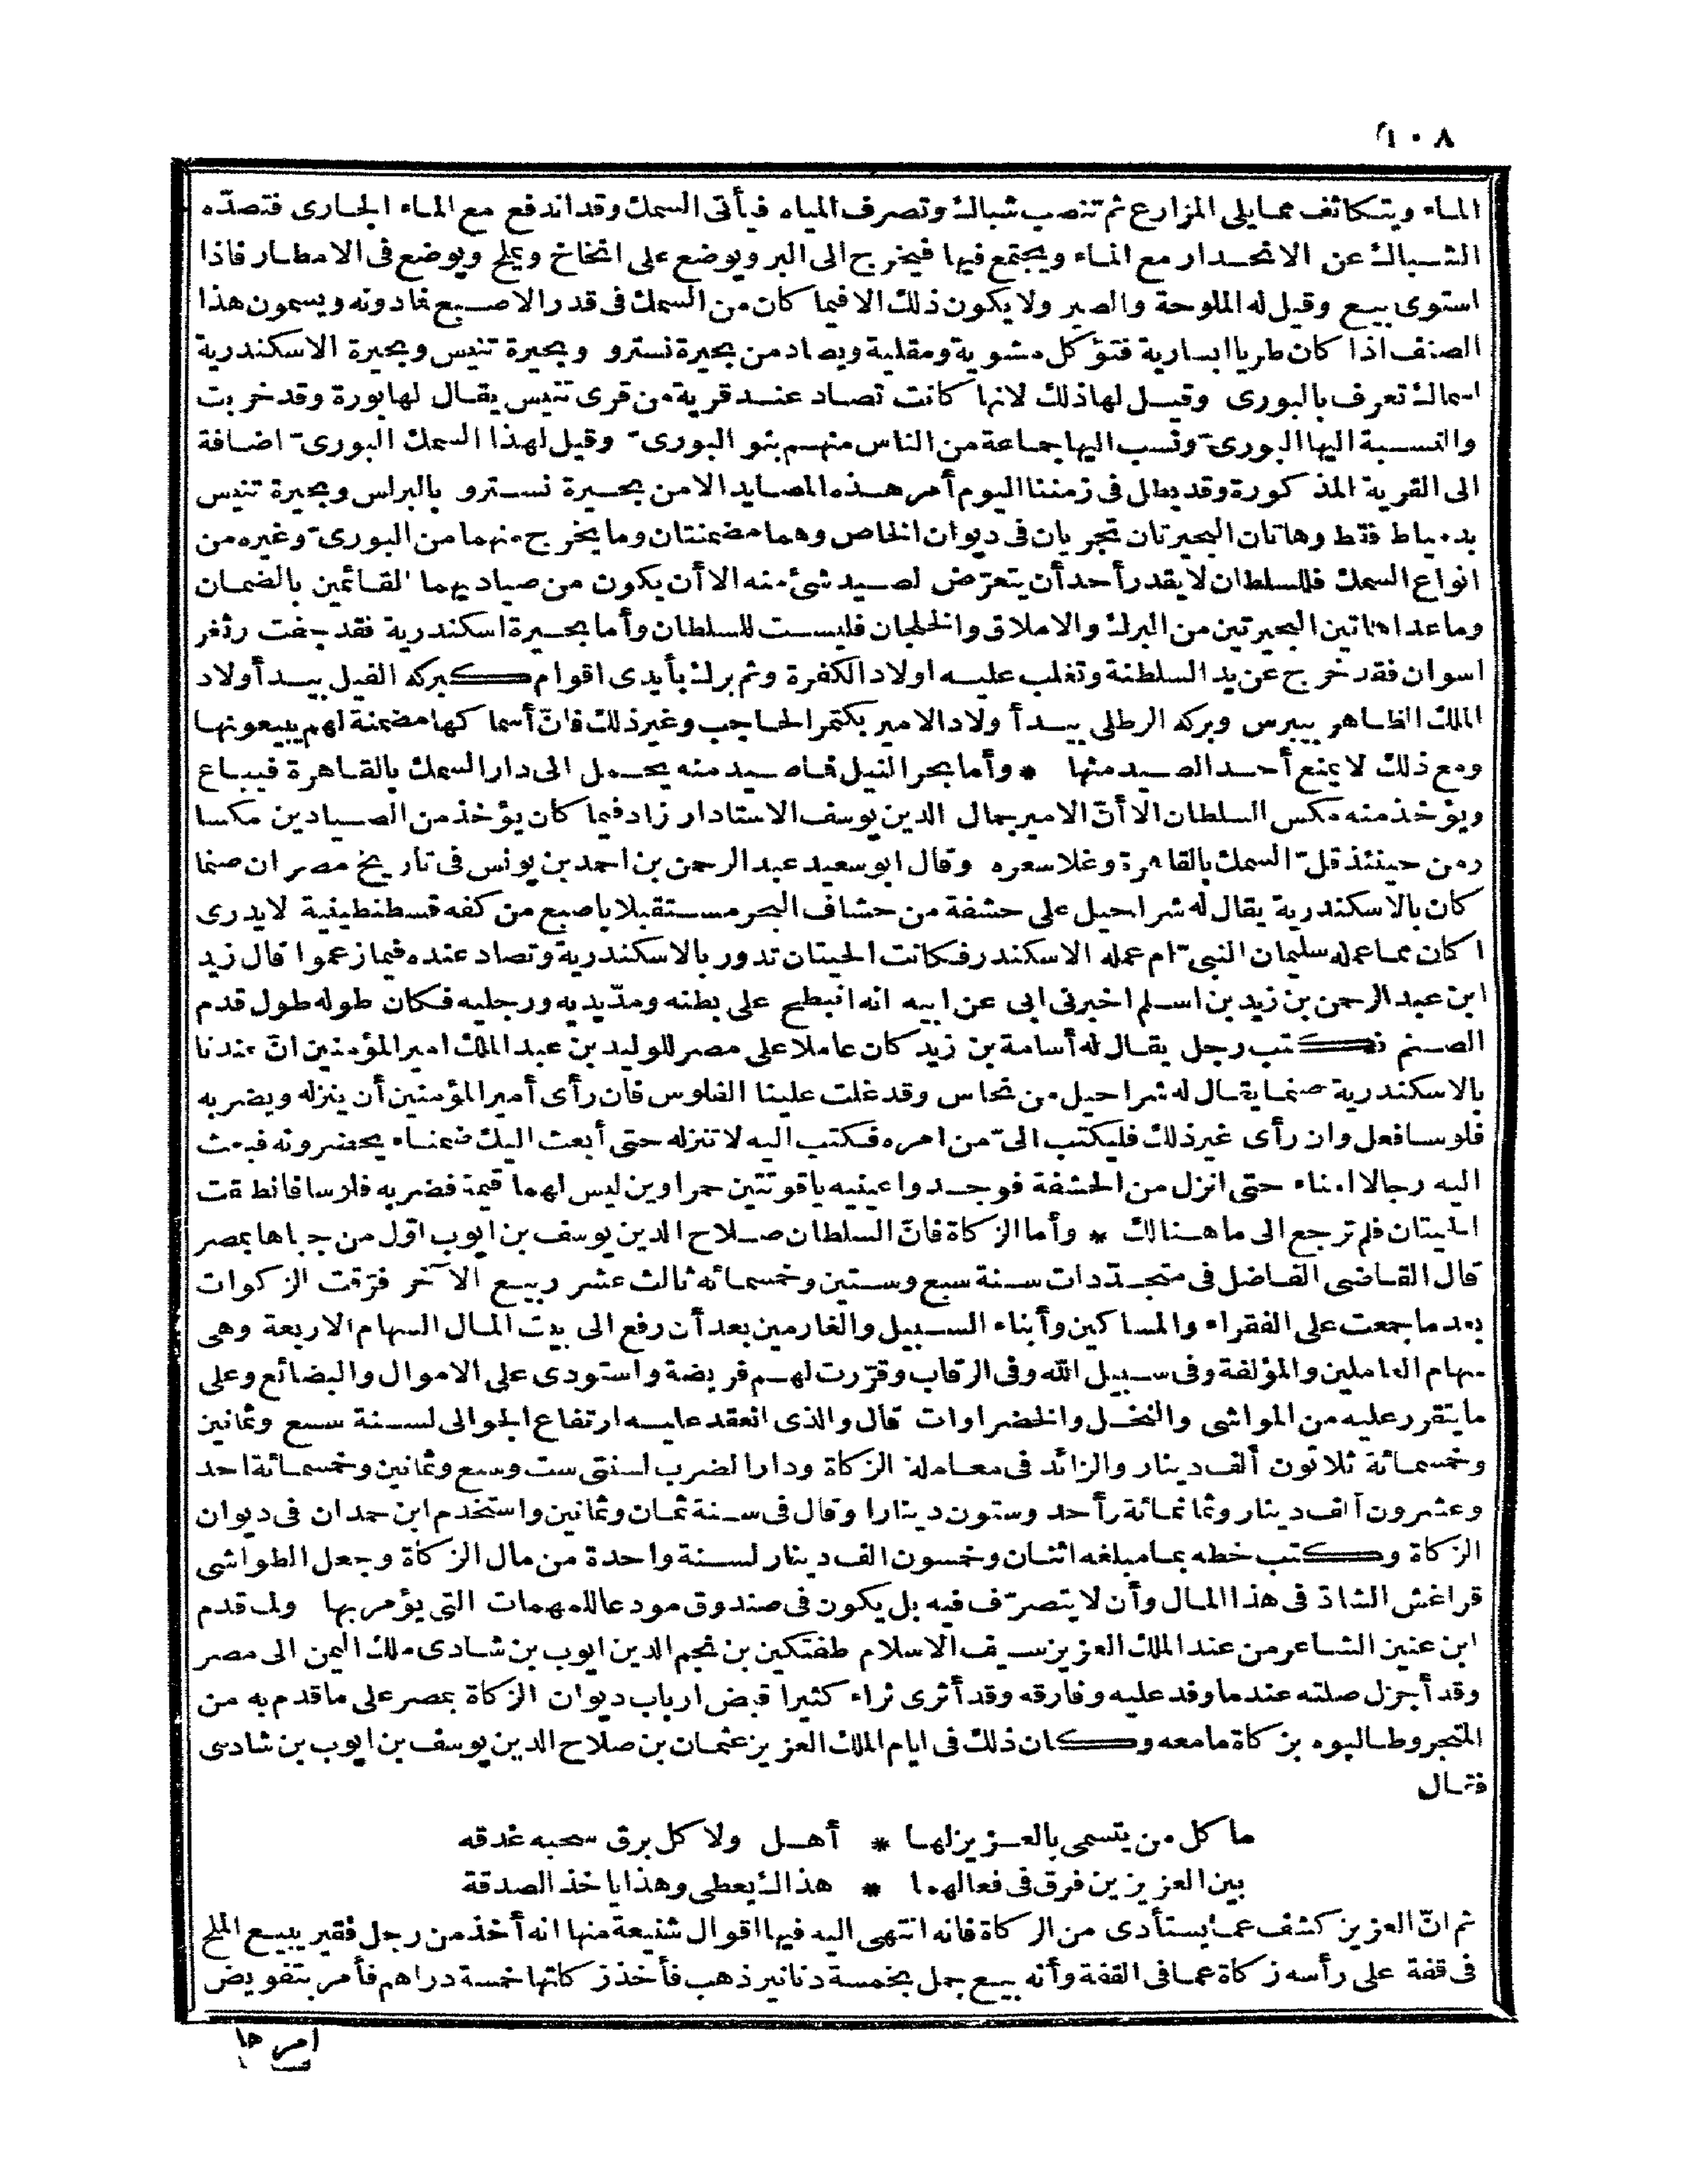 ١٠٨
الماء ويتكاثف مما يلى المزارع ثم تنصب شباك وتصرف المياه فيأتى السمك وقد اندفع مع الماء الجارى فتصدّه
الشباك عن الانحدار مع الماء ويجتمع فيها فيخرج الى البر ويوضع على انخاخ ويملح ويوضع فى الامطار فاذا
استوى بيع وقيل له الملوحة والصير ولا يكون ذلك الا فيما كان من السمك فى قدر الاصبع فما دونه ويسمون هذا
الصنف اذا كان طريا ابسارية فتؤكل مشوية ومقلية ويصاد من بحيرة نسترو وبحيرة تنيس وبحيرة الاسكندرية
اسماك تعرف بالبورى وقيل لها ذلك لانها كانت تصاد عند قرية من قرى تنيس يقال لها بورة وقد خربت
والنسبة اليها البورىّ ونسب اليها جماعة من الناس منهم بنو البورىّ وقيل لهذا السمك البورىّ اضافة
الى القرية المذكورة وقد بطل فى زمننا اليوم أمر هذه المصايد الا من بحيرة نسترو بالبرلس وبحيرة تنيس
بدمياط فقط وهاتان البحيرتان تجريان فى ديوان الخاص وهما مضمنتان وما يخرج منهما من البورىّ وغيره من
انواع السمك فللسلطان لا يقدر أحد أن يتعرّض لصيد شئ منه الا أن يكون من صياديهما القائمين بالضمان
وما عدا هاتين البحيرتين من البرك والاملاق والخلجان فليست للسلطان وأما بحيرة اسكندرية فقد جفت وثغر
اسوان فقد خرج عن يد السلطنة وتغلب عليه اولاد الكفرة وثم برك بأيدى اقوام كبركه الفيل بيد أولاد
الملك الظاهر بيبرس وبركه الرطلى بيد أولاد الامير بكتمر الحاجب وغير ذلك فانّ أسماكها مضمنة لهم يبيعونها
ومع ذلك لا يمنع أحد الصيد منها * وأما بحر النيل فما صيد منه يحمل الى دار السمك بالقاهرة فيباع
ويؤخذ منه مكس السلطان الا أنّ الامير جمال الدين يوسف الاستادار زاد فيما كان يؤخذ من الصيادين مكسا
ومن حينئذ قلّ السمك بالقاهرة وغلا سعره وقال ابو سعيد عبد الرحمن بن احمد بن يونس فى تاريخ مصر ان صنما
كان بالاسكندرية يقال له شراحيل على حشفة من حشاف البحر مستقبلا باصبع من كفه قسطنطينية لا يدرى
اكان مما عمله سليمان النبىّ ام عمله الاسكندر فكانت الحيتان تدور بالاسكندرية وتصاد عنده فيما زعموا قال زيد
ابن عبد الرحمن بن زيد بن اسلم اخبرنى ابى عن ابيه انه انبطح على بطنه ومدّ يديه ورجليه فكان طوله طول قدم
الصنم فكتب رجل يقال له أسامة بن زيد كان عاملا على مصر للوليد بن عبد الملك امير المؤمنين انّ عندنا
بالاسكندرية صنما يقال له شراحيل من نحاس وقد غلت علينا الفلوس فان رأى أمير المؤمنين أن ينزله ويضربه
فلوسا فعل وان رأى غير ذلك فليكتب الىّ من امره فكتب اليه لا تنزله حتى أبعث اليك ضمناء يحضرونه فبعث
اليه رجالا امناء حتى انزل من الحشفة فوجدوا عينيه ياقوتتين حمراوين ليس لهما قيمة فضربه فلوسا فانطلقت
الحيتان فلم ترجع الى ما هنالك * وأما الزكاة فانّ السلطان صلاح الدين يوسف بن ايوب اوّل من جباها بمصر
قال القاضى الفاضل فى متجدّدات سنة سبع وستين وخمسمائه ثالث عشر ربيع الآخر فرّقت الزكوات
بعد ما جمعت على الفقراء والمساكين وأبناء السبيل والغارمين بعد أن رفع الى بيت المال السهام الاربعة وهى
سهام العاملين والمؤلفة وفى سبيل الله وفى الرقاب وقرّرت لهم فريضة واستودى على الاموال والبضائع وعلى
ما يتقرر عليه من المواشى والنخل والخضراوات قال والذى انعقد عليه ارتفاع الجوالى لسنة سبع وثمانين
وخمسمائة ثلاثون ألف دينار والزائد فى معاملة الزكاة ودار الضرب لسنتى ست وسبع وثمانين وخمسمائة احد
وعشرون ألف دينار وثمانمائة وأحد وستون دينارا وقال فى سنة ثمان وثمانين واستخدم ابن حمدان فى ديوان
الزكاة وكتب خطه بما مبلغه اثنان وخمسون الف دينار لسنة واحدة من مال الزكاة وجعل الطواشى
قراغش الشادّ فى هذا المال وأن لا يتصرّف فيه بل يكون فى صندوق مودعا للمهمات التى يؤمر بها ولما قدم
ابن عنين الشاعر من عند الملك العزيز سيف الاسلام طفتكين بن نجم الدين ايوب بن شادى ملك اليمن الى مصر
وقد أجزل صلته عندما وفد عليه وفارقه وقد أثرى ثراء كثيرا قبض ارباب ديوان الزكاة بمصر على ما قدم به من
المتجر وطالبوه بزكاة ما معه وكان ذلك فى ايام الملك العزيز عثمان بن صلاح الدين يوسف بن ايوب بن شادى
فقال
ما كل من يتسمى بالعزيز لها * أهل ولا كل برق سحبه غدقه
بين العزيزين فرق فى فعالهما * هذاك يعطى وهذا ياخذ الصدقة
ثم انّ العزيز كشف عما يستأدى من الزكاة فانه انتهى اليه فيها اقوال شنيعة منها انه أخذ من رجل فقير يبيع الملح
فى قفة على رأسه زكاة عما فى القفة وأنه بيع جمل بخمسة دنانير ذهب فأخذ زكاتها خمسة دراهم فأمر بتفويض
امرها